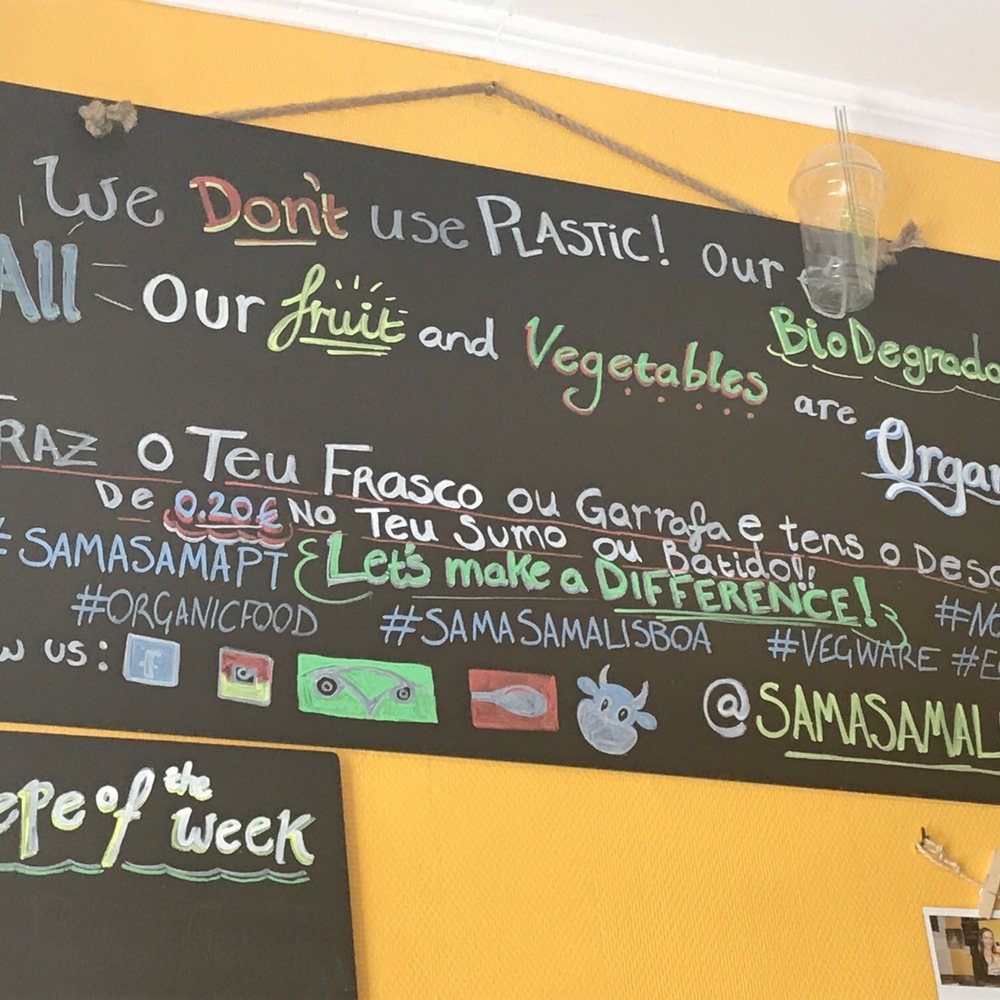 We Don't use PLASTIC! Our
BioDegrada
All Our fruit and Vegetables are Organ
RAZ O Teu Frasco ou Garrafa e tens o Desc
De 0.20€ No Teu Sumo ou Batido!!
#SAMASAMAPT {Let's make a DIFFERENCE!}
#ORGANICFOOD #SAMASAMALISBOA #VEGWARE #E
#NO
w us: f
@SAMASAMAL
epe of the week